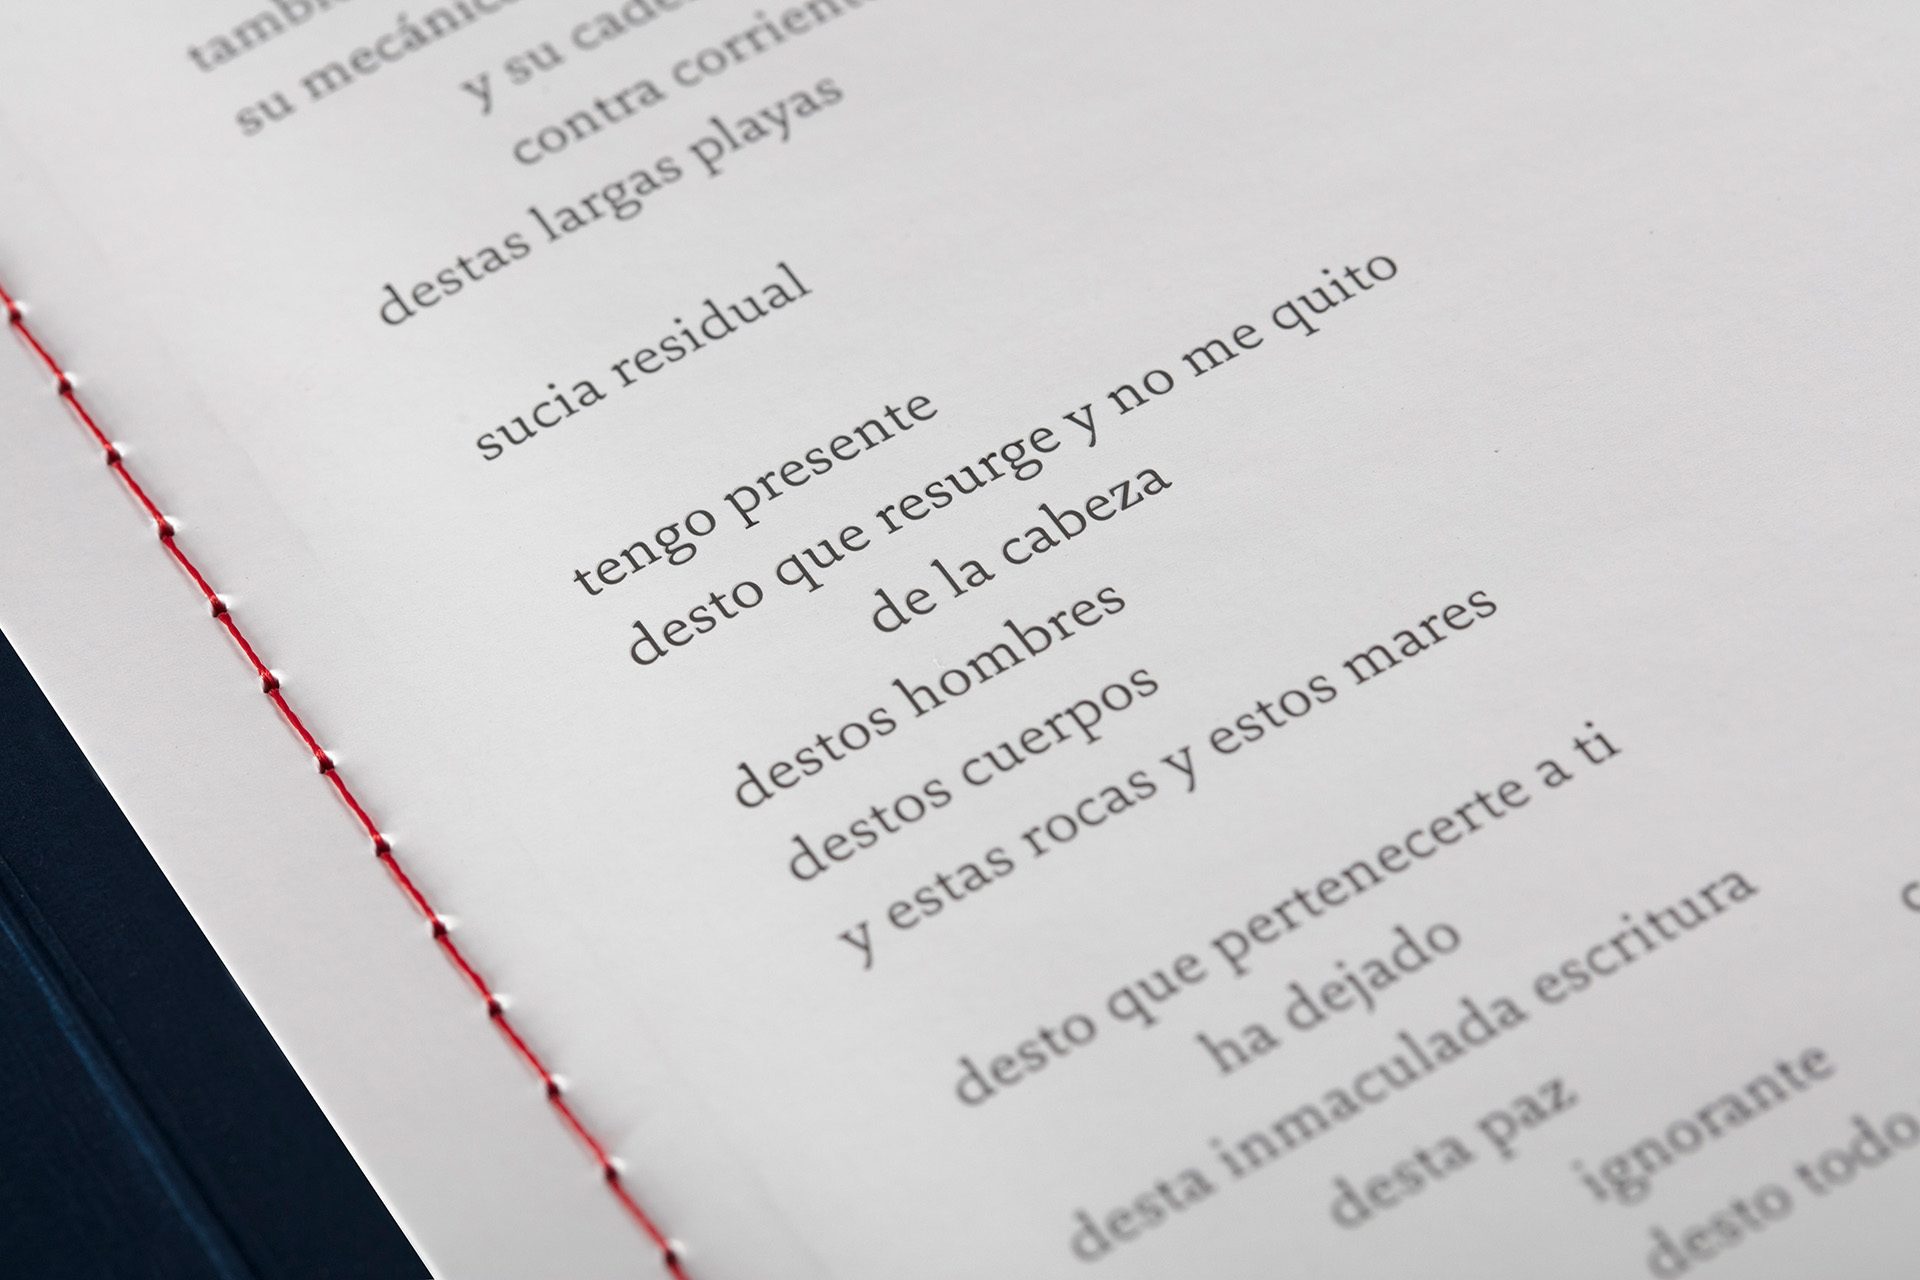 su mecánica
y su
contra corriente
destas largas playas
sucia residual
tengo presente
desto que resurge y no me quito
de la cabeza
destos hombres
destos cuerpos
y estas rocas y estos mares
desto que pertenecerte a ti
ha dejado
desta inmaculada escritura
desta paz
ignorante
desto todo